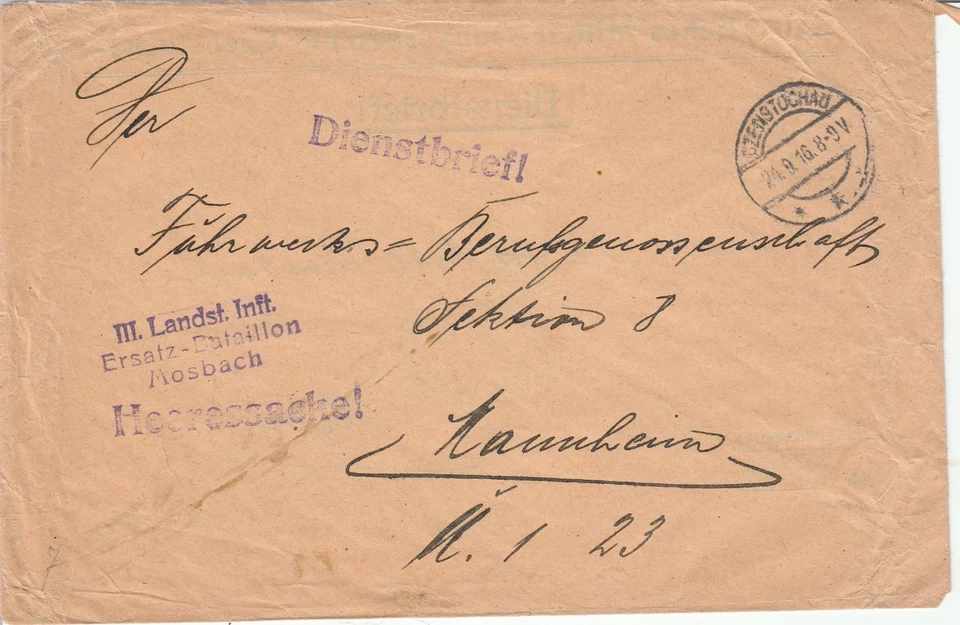 Der
Dienstbrief!
CZENSTOCHAU
24.9.16.8-9V
Fuhrwerks=Berufsgenossenschaft
Sektion 8
III. Landst. Inft.
Ersatz-Bataillon
Mosbach
Heeressache!
Mannheim
U. 1 23
7
Dienstbrief!